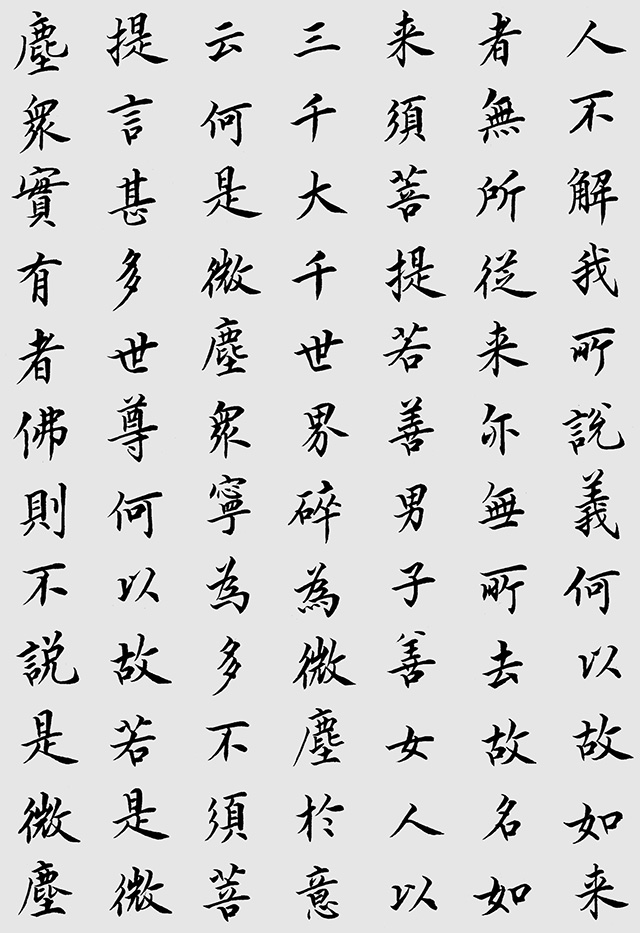 人不解我所說義何以故如来
者無所從来亦無所去故名如
来須菩提若善男子善女人以
三千大千世界碎為微塵於意
云何是微塵衆寧為多不須菩
提言甚多世尊何以故若是微
塵衆實有者佛則不說是微塵